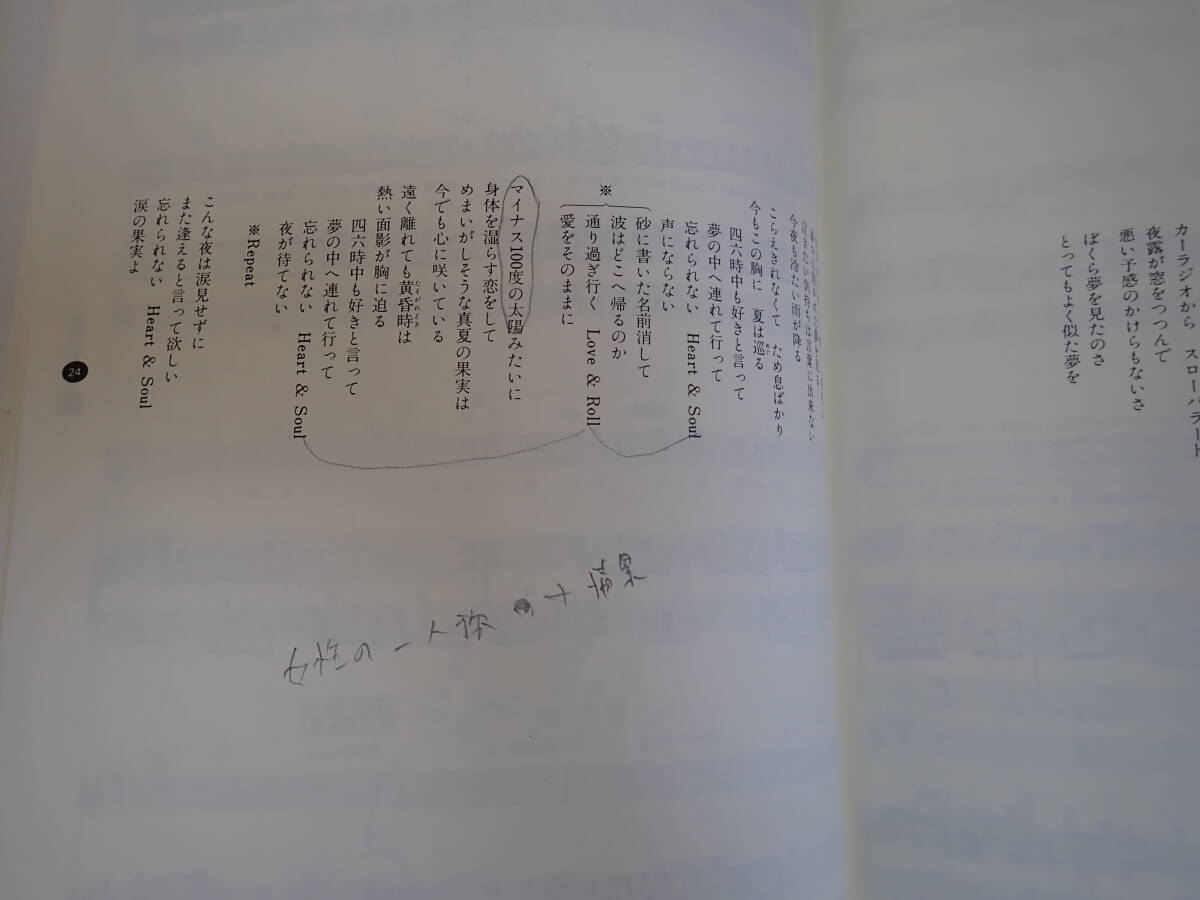 カーラジオから　スローバラード
夜露が窓をつつんで
悪い予感のかけらもないさ
ぼくら夢を見たのさ
とってもよく似た夢を
泣きたい気持ちは言葉に出来ない
今夜も冷たい雨が降る
こらえきれなくて　ため息ばかり
今もこの胸に　夏は巡る
四六時中も好きと言って
夢の中へ連れて行って
忘れられない　Heart & Soul
声にならない
※
砂に書いた名前消して
波はどこへ帰るのか
通り過ぎ行く　Love & Roll
愛をそのままに
マイナス100度の太陽みたいに
身体を湿らす恋をして
めまいがしそうな真夏の果実は
今でも心に咲いている
遠く離れても黄昏時は
熱い面影が胸に迫る
四六時中も好きと言って
夢の中へ連れて行って
忘れられない　Heart & Soul
夜が待てない
※Repeat
こんな夜は涙見せずに
また逢えると言って欲しい
忘れられない　Heart & Soul
涙の果実よ
24
女性の一人称 + 情景